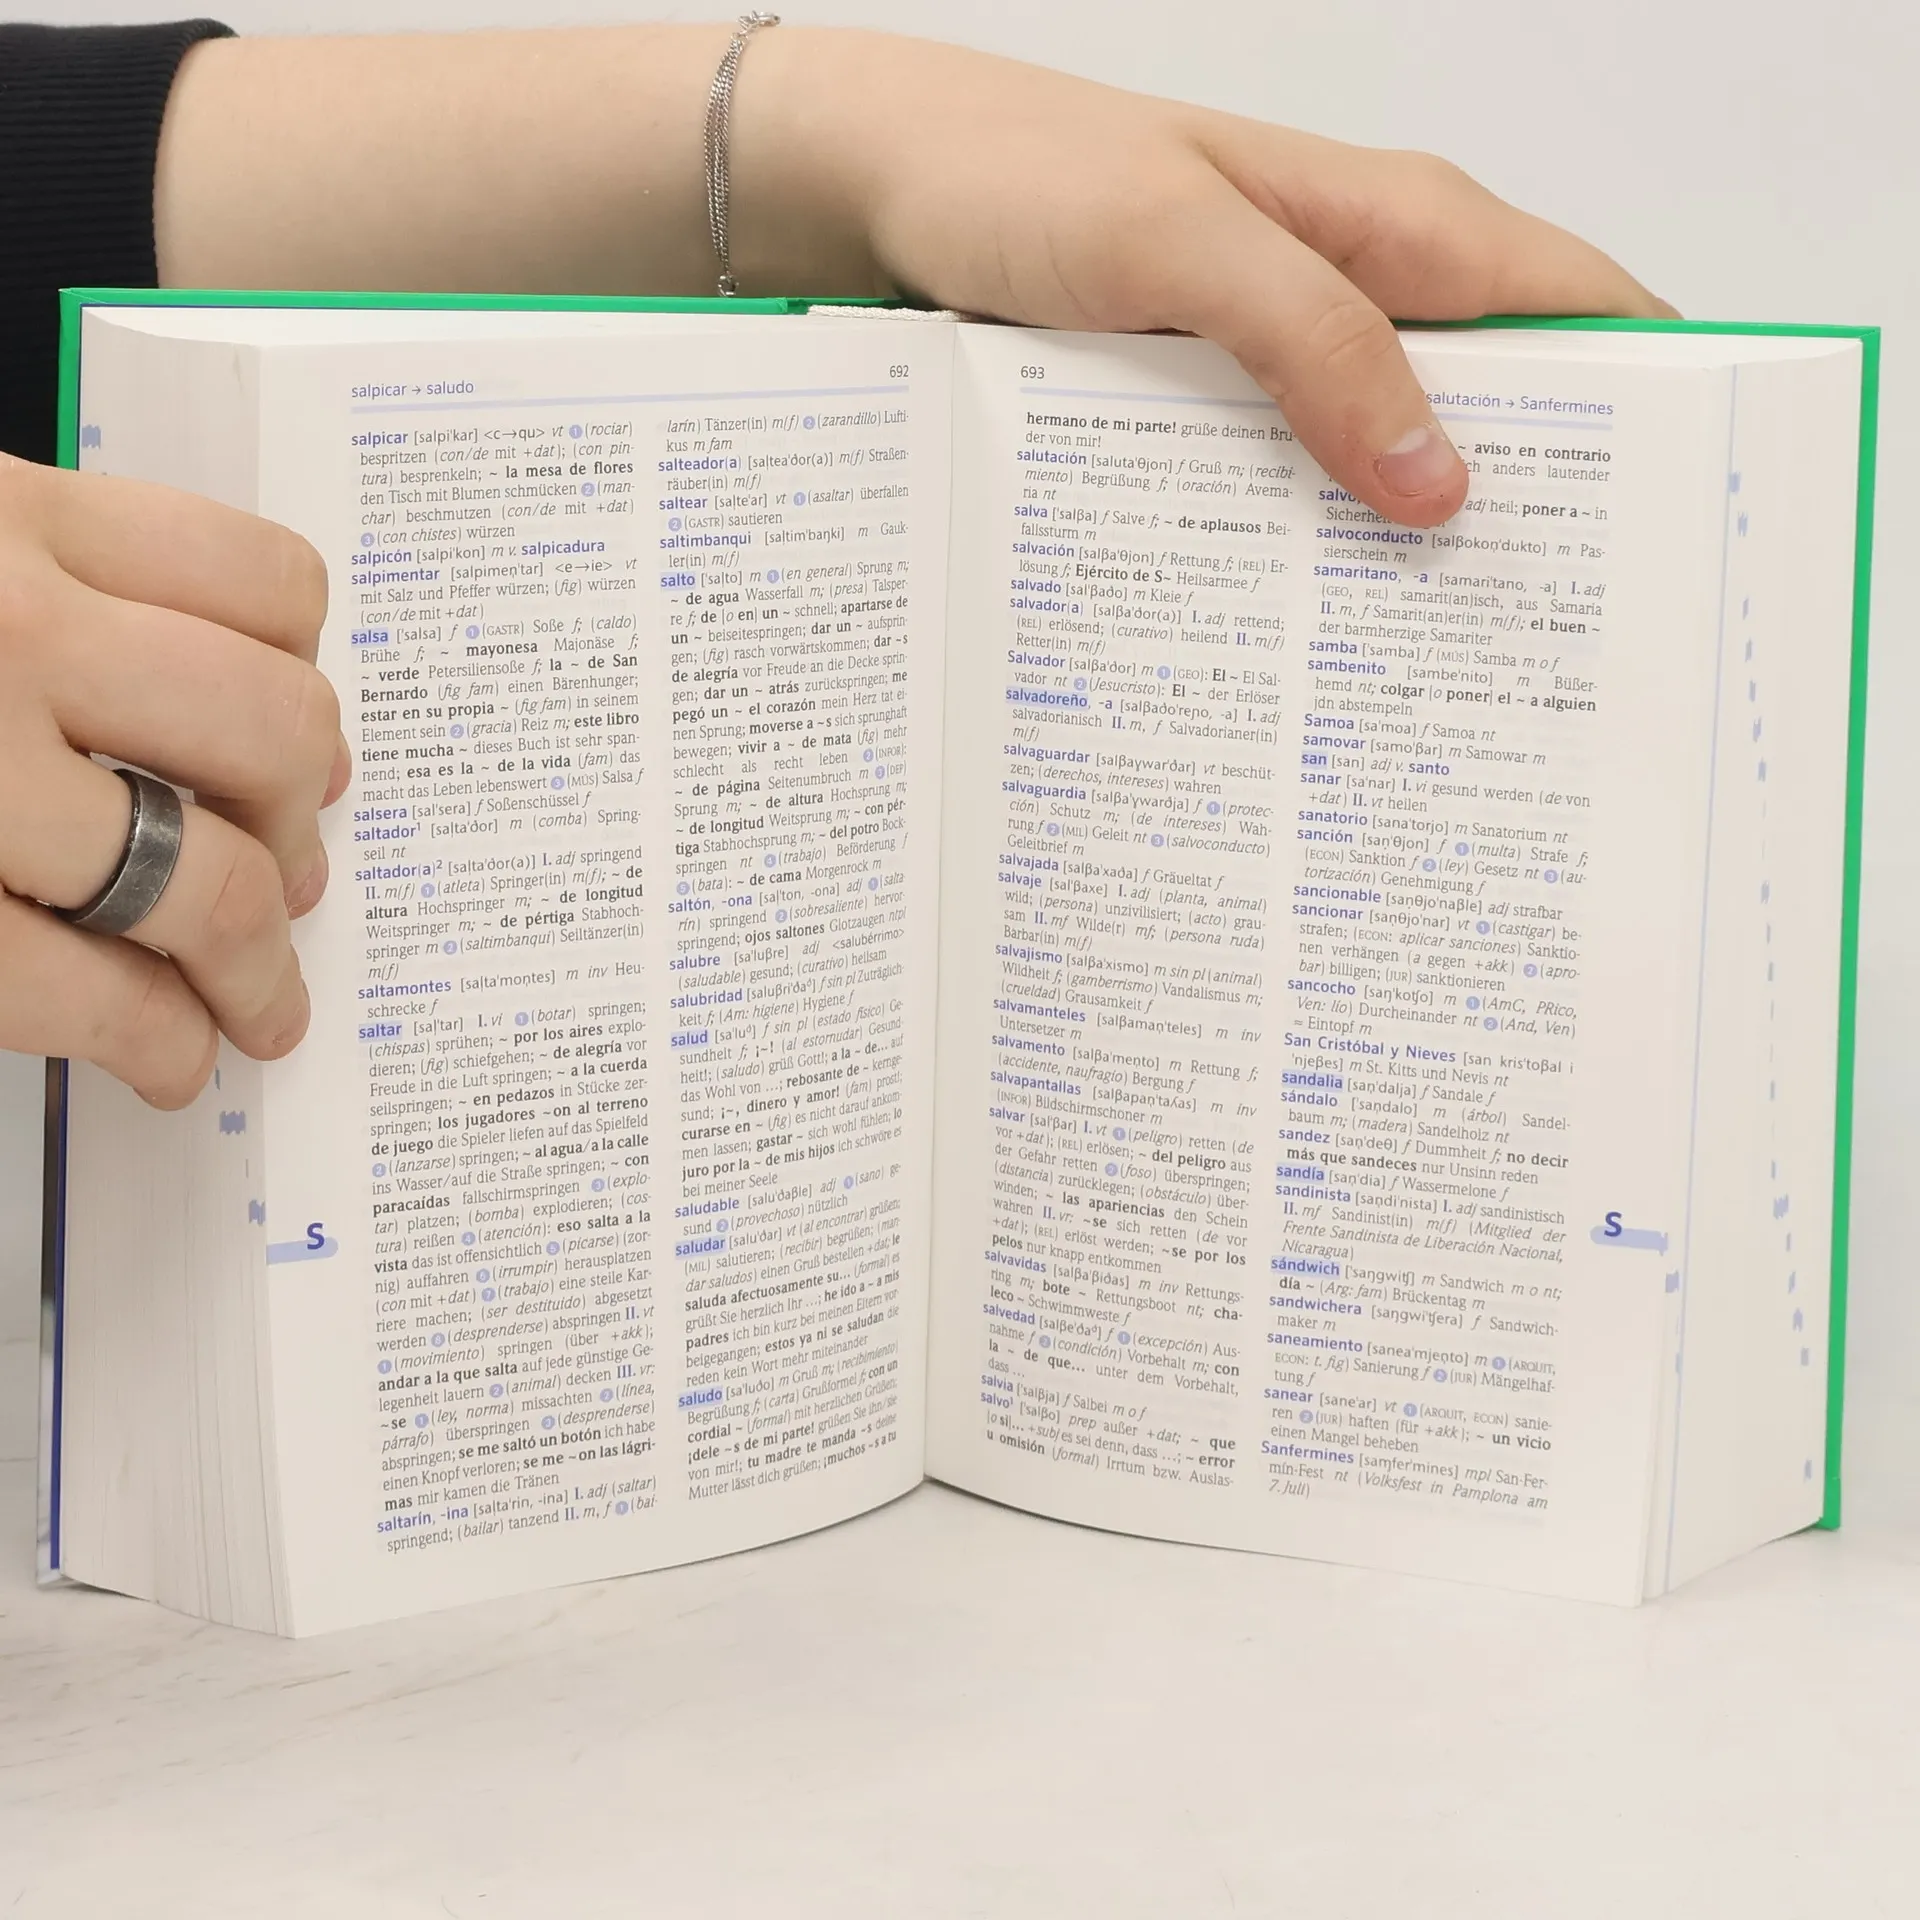 salpicar → saludo
692
salpicar [salpi'kar] <c→qu> vt ❶ (rociar)
bespritzen (con/de mit +dat); (con pin-
tura) besprenkeln; ~ la mesa de flores
den Tisch mit Blumen schmücken ❷ (man-
char) beschmutzen (con/de mit +dat)
❸ (con chistes) würzen
salpicón [salpi'kon] m v. salpicadura
salpimentar [salpimen̩'tar] <e→ie> vt
mit Salz und Pfeffer würzen; (fig) würzen
(con/de mit +dat)
salsa ['salsa] f ❶ (GASTR) Soße f; (caldo)
Brühe f; ~ mayonesa Majonäse f;
~ verde Petersiliensoße f; la ~ de San
Bernardo (fig fam) einen Bärenhunger;
estar en su propia ~ (fig fam) in seinem
Element sein ❷ (gracia) Reiz m; este libro
tiene mucha ~ dieses Buch ist sehr span-
nend; esa es la ~ de la vida (fam) das
macht das Leben lebenswert ❸ (MÚS) Salsa f
salsera [sal'sera] f Soßenschüssel f
saltador¹ [sal̩ta'ðor] m (comba) Spring-
seil nt
saltador(a)² [sal̩ta'ðor(a)] I. adj springend
II. m(f) ❶ (atleta) Springer(in) m(f); ~ de
altura Hochspringer m; ~ de longitud
Weitspringer m; ~ de pértiga Stabhoch-
springer m ❷ (saltimbanqui) Seiltänzer(in)
m(f)
saltamontes [sal̩ta'mon̩tes] m inv Heu-
schrecke f
saltar [sal̩'tar] I. vi ❶ (botar) springen;
(chispas) sprühen; ~ por los aires explo-
dieren; (fig) schiefgehen; ~ de alegría vor
Freude in die Luft springen; ~ a la cuerda
seilspringen; ~ en pedazos in Stücke zer-
springen; los jugadores ~on al terreno
de juego die Spieler liefen auf das Spielfeld
❷ (lanzarse) springen; ~ al agua/a la calle
ins Wasser/auf die Straße springen; ~ con
paracaídas fallschirmspringen ❸ (explo-
tar) platzen; (bomba) explodieren; (cos-
tura) reißen ❹ (atención): eso salta a la
vista das ist offensichtlich ❺ (picarse) (zor-
nig) auffahren ❻ (irrumpir) herausplatzen
(con mit +dat) ❼ (trabajo) eine steile Kar-
riere machen; (ser destituido) abgesetzt
werden ❽ (desprenderse) abspringen II. vt
❶ (movimiento) springen (über +akk);
andar a la que salta auf jede günstige Ge-
legenheit lauern ❷ (animal) decken III. vr:
~se ❶ (ley, norma) missachten ❷ (línea,
párrafo) überspringen ❸ (desprenderse)
abspringen; se me saltó un botón ich habe
einen Knopf verloren; se me ~on las lágri-
mas mir kamen die Tränen
saltarín, -ina [sal̩ta'rin, -ina] I. adj (saltar)
springend; (bailar) tanzend II. m, f ❶ (bai-
larín) Tänzer(in) m(f) ❷ (zarandillo) Lufti-
kus m fam
salteador(a) [sal̩tea'ðor(a)] m(f) Straßen-
räuber(in) m(f)
saltear [sal̩te'ar] vt ❶ (asaltar) überfallen
❷ (GASTR) sautieren
saltimbanqui [sal̩tim'baŋki] m Gauk-
ler(in) m(f)
salto ['sal̩to] m ❶ (en general) Sprung m;
~ de agua Wasserfall m; (presa) Talsper-
re f; de [o en] un ~ schnell; apartarse de
un ~ beiseitespringen; dar un ~ aufsprin-
gen; (fig) rasch vorwärtskommen; dar ~s
de alegría vor Freude an die Decke sprin-
gen; dar un ~ atrás zurückspringen; me
pegó un ~ el corazón mein Herz tat ei-
nen Sprung; moverse a ~s sich sprunghaft
bewegen; vivir a ~ de mata (fig) mehr
schlecht als recht leben ❷ (INFOR):
~ de página Seitenumbruch m ❸ (DEP)
Sprung m; ~ de altura Hochsprung m;
~ de longitud Weitsprung m; ~ con pér-
tiga Stabhochsprung m; ~ del potro Bock-
springen nt ❹ (trabajo) Beförderung f
❺ (bata): ~ de cama Morgenrock m
saltón, -ona [sal̩'ton, -ona] adj ❶ (salta-
rín) springend ❷ (sobresaliente) hervor-
springend; ojos saltones Glotzaugen ntpl
salubre [sa'luβre] adj <salubérrimo>
(saludable) gesund; (curativo) heilsam
salubridad [saluβri'ðaᵈ] f sin pl Zuträglich-
keit f; (Am: higiene) Hygiene f
salud [sa'luᵈ] f sin pl (estado físico) Ge-
sundheit f; ¡~! (al estornudar) Gesund-
heit!; (saludo) grüß Gott!; a la ~ de... auf
das Wohl von ...; rebosante de ~ kernge-
sund; ¡~, dinero y amor! (fam) prost!;
curarse en ~ (fig) es nicht darauf ankom-
men lassen; gastar ~ sich wohl fühlen; lo
juro por la ~ de mis hijos ich schwöre es
bei meiner Seele
saludable [salu'ðaβle] adj ❶ (sano) ge-
sund ❷ (provechoso) nützlich
saludar [salu'ðar] vt (al encontrar) grüßen;
(MIL) salutieren; (recibir) begrüßen; (man-
dar saludos) einen Gruß bestellen +dat; le
saluda afectuosamente su... (formal) es
grüßt Sie herzlich Ihr ...; he ido a ~ a mis
padres ich bin kurz bei meinen Eltern vor-
beigegangen; estos ya ni se saludan die
reden kein Wort mehr miteinander
saludo [sa'luðo] m Gruß m; (recibimiento)
Begrüßung f; (carta) Grußformel f; con un
cordial ~ (formal) mit herzlichen Grüßen;
¡dele ~s de mi parte! grüßen Sie ihn/sie
von mir!; tu madre te manda ~s deine
Mutter lässt dich grüßen; ¡muchos ~s a tu
693
salutación → Sanfermines
hermano de mi parte! grüße deinen Bru-
der von mir!
salutación [saluta'θjon] f Gruß m; (recibi-
miento) Begrüßung f; (oración) Avema-
ria nt
salva ['salβa] f Salve f; ~ de aplausos Bei-
fallssturm m
salvación [salβa'θjon] f Rettung f; (REL) Er-
lösung f; Ejército de S~ Heilsarmee f
salvado [sal'βaðo] m Kleie f
salvador(a) [salβa'ðor(a)] I. adj rettend;
(REL) erlösend; (curativo) heilend II. m(f)
Retter(in) m(f)
Salvador [salβa'ðor] m ❶ (GEO): El ~ El Sal-
vador nt ❷ (Jesucristo): El ~ der Erlöser
salvadoreño, -a [salβaðo'reɲo, -a] I. adj
salvadorianisch II. m, f Salvadorianer(in)
m(f)
salvaguardar [salβaɣwar'ðar] vt beschüt-
zen; (derechos, intereses) wahren
salvaguardia [salβa'ɣwarðja] f ❶ (protec-
ción) Schutz m; (de intereses) Wah-
rung f ❷ (MIL) Geleit nt ❸ (salvoconducto)
Geleitbrief m
salvajada [salβa'xaða] f Gräueltat f
salvaje [sal'βaxe] I. adj (planta, animal)
wild; (persona) unzivilisiert; (acto) grau-
sam II. mf Wilde(r) mf; (persona ruda)
Barbar(in) m(f)
salvajismo [salβa'xismo] m sin pl (animal)
Wildheit f; (gamberrismo) Vandalismus m;
(crueldad) Grausamkeit f
salvamanteles [salβaman̩'teles] m inv
Untersetzer m
salvamento [salβa'men̩to] m Rettung f;
(accidente, naufragio) Bergung f
salvapantallas [salβapan̩'taʎas] m inv
(INFOR) Bildschirmschoner m
salvar [sal'βar] I. vt ❶ (peligro) retten (de
vor +dat); (REL) erlösen; ~ del peligro aus
der Gefahr retten ❷ (foso) überspringen;
(distancia) zurücklegen; (obstáculo) über-
winden; ~ las apariencias den Schein
wahren II. vr: ~se sich retten (de vor
+dat); (REL) erlöst werden; ~se por los
pelos nur knapp entkommen
salvavidas [salβa'βiðas] m inv Rettungs-
ring m; bote ~ Rettungsboot nt; cha-
leco ~ Schwimmweste f
salvedad [salβe'ðaᵈ] f ❶ (excepción) Aus-
nahme f ❷ (condición) Vorbehalt m; con
la ~ de que... unter dem Vorbehalt,
dass ...
salvia ['salβja] f Salbei m o f
salvo¹ ['salβo] prep außer +dat; ~ que
[o si]... +subj es sei denn, dass ...; ~ error
u omisión (formal) Irrtum bzw. Auslas-
~ aviso en contrario
anders lautender
adj heil; poner a ~ in
salvoconducto [salβokon̩'dukto] m Pas-
sierschein m
samaritano, -a [samari'tano, -a] I. adj
(GEO, REL) samarit(an)isch, aus Samaria
II. m, f Samarit(an)er(in) m(f); el buen ~
der barmherzige Samariter
samba ['samba] f (MÚS) Samba m o f
sambenito [sambe'nito] m Büßer-
hemd nt; colgar [o poner] el ~ a alguien
jdn abstempeln
Samoa [sa'moa] f Samoa nt
samovar [samo'βar] m Samowar m
san [san] adj v. santo
sanar [sa'nar] I. vi gesund werden (de von
+dat) II. vt heilen
sanatorio [sana'torjo] m Sanatorium nt
sanción [san̩'θjon] f ❶ (multa) Strafe f;
(ECON) Sanktion f ❷ (ley) Gesetz nt ❸ (au-
torización) Genehmigung f
sancionable [san̩θjo'naβle] adj strafbar
sancionar [san̩θjo'nar] vt ❶ (castigar) be-
strafen; (ECON: aplicar sanciones) Sanktio-
nen verhängen (a gegen +akk) ❷ (apro-
bar) billigen; (JUR) sanktionieren
sancocho [saŋ'kotʃo] m ❶ (AmC, PRico,
Ven: lío) Durcheinander nt ❷ (And, Ven)
≈ Eintopf m
San Cristóbal y Nieves [san kris'toβal i
'njeβes] m St. Kitts und Nevis nt
sandalia [san̩'dalja] f Sandale f
sándalo ['san̩dalo] m (árbol) Sandel-
baum m; (madera) Sandelholz nt
sandez [san̩'deθ] f Dummheit f; no decir
más que sandeces nur Unsinn reden
sandía [san̩'dia] f Wassermelone f
sandinista [san̩di'nista] I. adj sandinistisch
II. mf Sandinist(in) m(f) (Mitglied der
Frente Sandinista de Liberación Nacional,
Nicaragua)
sándwich ['saŋgwitʃ] m Sandwich m o nt;
día ~ (Arg: fam) Brückentag m
sandwichera [saŋgwi'tʃera] f Sandwich-
maker m
saneamiento [sanea'mjen̩to] m ❶ (ARQUIT,
ECON: t. fig) Sanierung f ❷ (JUR) Mängelhaf-
tung f
sanear [sane'ar] vt ❶ (ARQUIT, ECON) sanie-
ren ❷ (JUR) haften (für +akk); ~ un vicio
einen Mangel beheben
Sanfermines [saɱfer'mines] mpl San-Fer-
mín-Fest nt (Volksfest in Pamplona am
7. Juli)
S
S